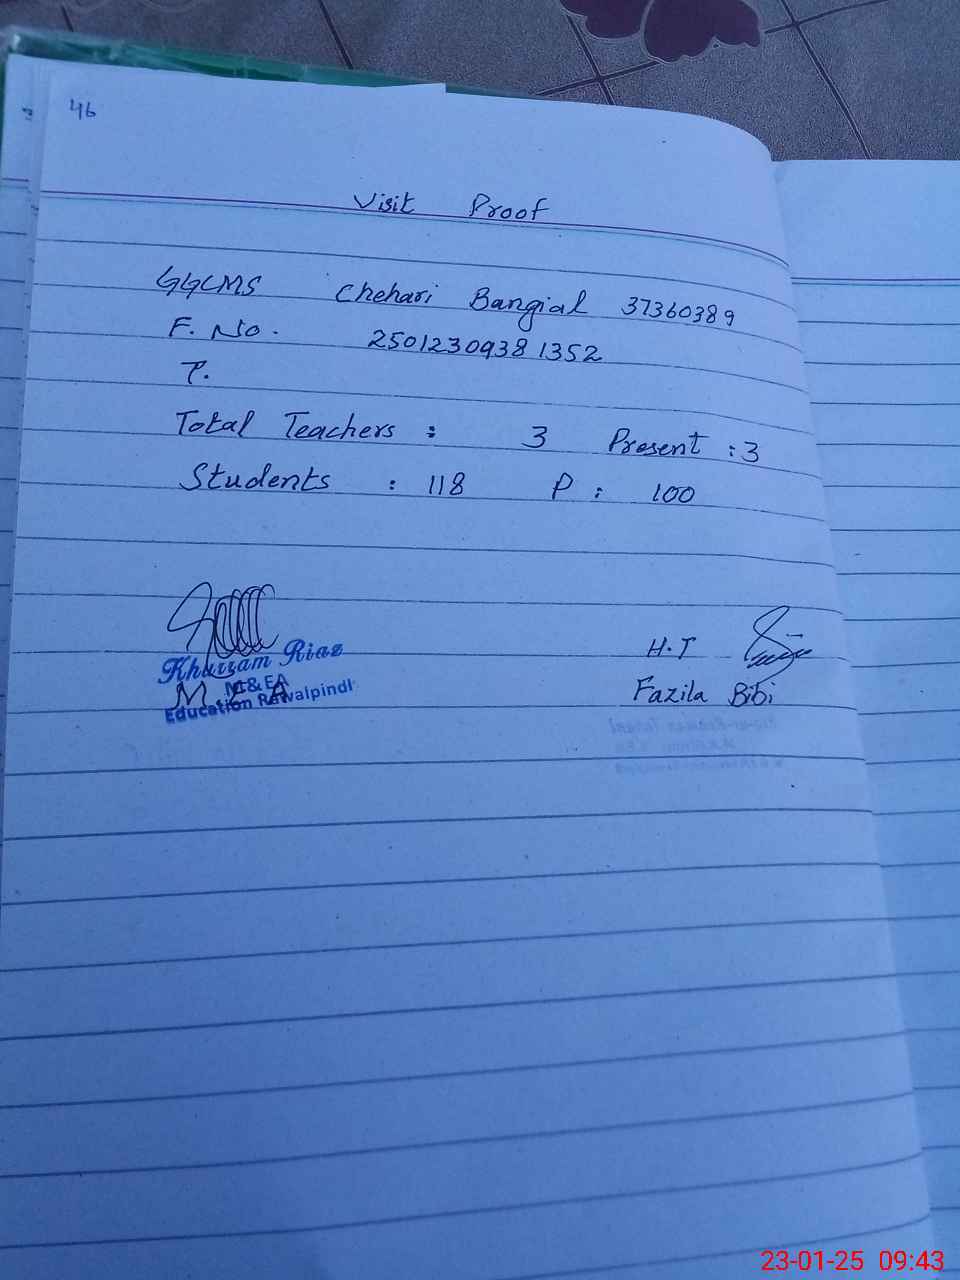 46
Visit Proof
GGCMS Chehari Bangial 37360389
F. No. 2501230938 1352
T.
Total Teachers : 3 Present : 3
Students : 118 P : 100
Khurram Riaz
M&EA
M. E A
Education Rawalpindi
H.T
Fazila Bibi
23-01-25 09:43